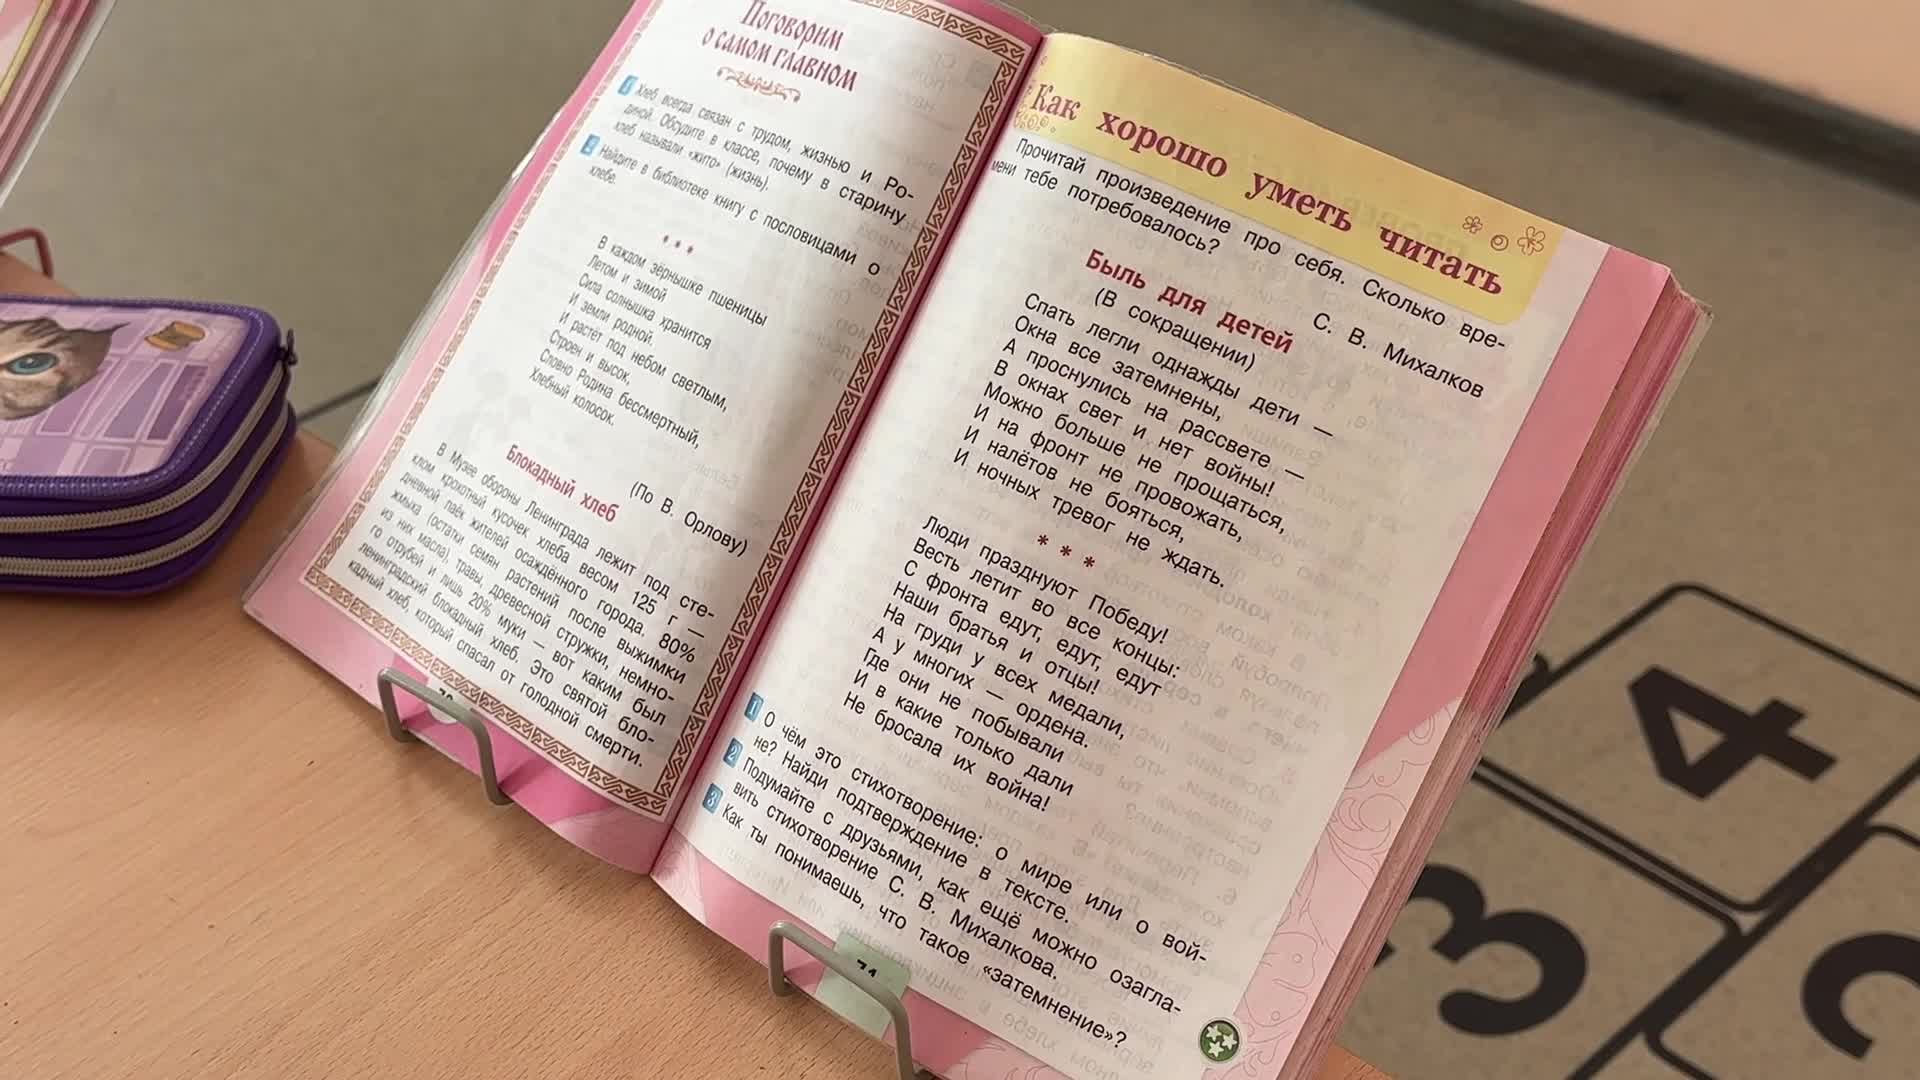 Поговорим
о самом главном
1 Хлеб всегда связан с трудом, жизнью и Ро-
диной. Обсудите в классе, почему в старину
хлеб называли «жито» (жизнь).
2 Найдите в библиотеке книгу с пословицами о
хлебе.
* * *
В каждом зёрнышке пшеницы
Летом и зимой
Сила солнышка хранится
И земли родной.
И растёт под небом светлым,
Строен и высок,
Словно Родина бессмертный,
Хлебный колосок.
(По В. Орлову)
Блокадный хлеб
В Музее обороны Ленинграда лежит под сте-
клом крохотный кусочек хлеба весом 125 г —
дневной паёк жителей осаждённого города. 80%
жмыха (остатки семян растений после выжимки
из них масла), травы, древесной стружки, немно-
го отрубей и лишь 20% муки — вот каким был
ленинградский блокадный хлеб. Это святой бло-
кадный хлеб, который спасал от голодной смерти.
Как хорошо уметь читать
Прочитай произведение про себя. Сколько вре-
мени тебе потребовалось?
С. В. Михалков
Быль для детей
(В сокращении)
Спать легли однажды дети —
Окна все затемнены,
А проснулись на рассвете —
В окнах свет и нет войны!
Можно больше не прощаться,
И на фронт не провожать,
И налётов не бояться,
И ночных тревог не ждать.
* * *
Люди празднуют Победу!
Весть летит во все концы:
С фронта едут, едут, едут
Наши братья и отцы!
На груди у всех медали,
А у многих — ордена.
Где они не побывали
И в какие только дали
Не бросала их война!
1 О чём это стихотворение: о мире или о вой-
не? Найди подтверждение в тексте.
2 Подумайте с друзьями, как ещё можно озагла-
вить стихотворение С. В. Михалкова.
3 Как ты понимаешь, что такое «затемнение»?
4
3